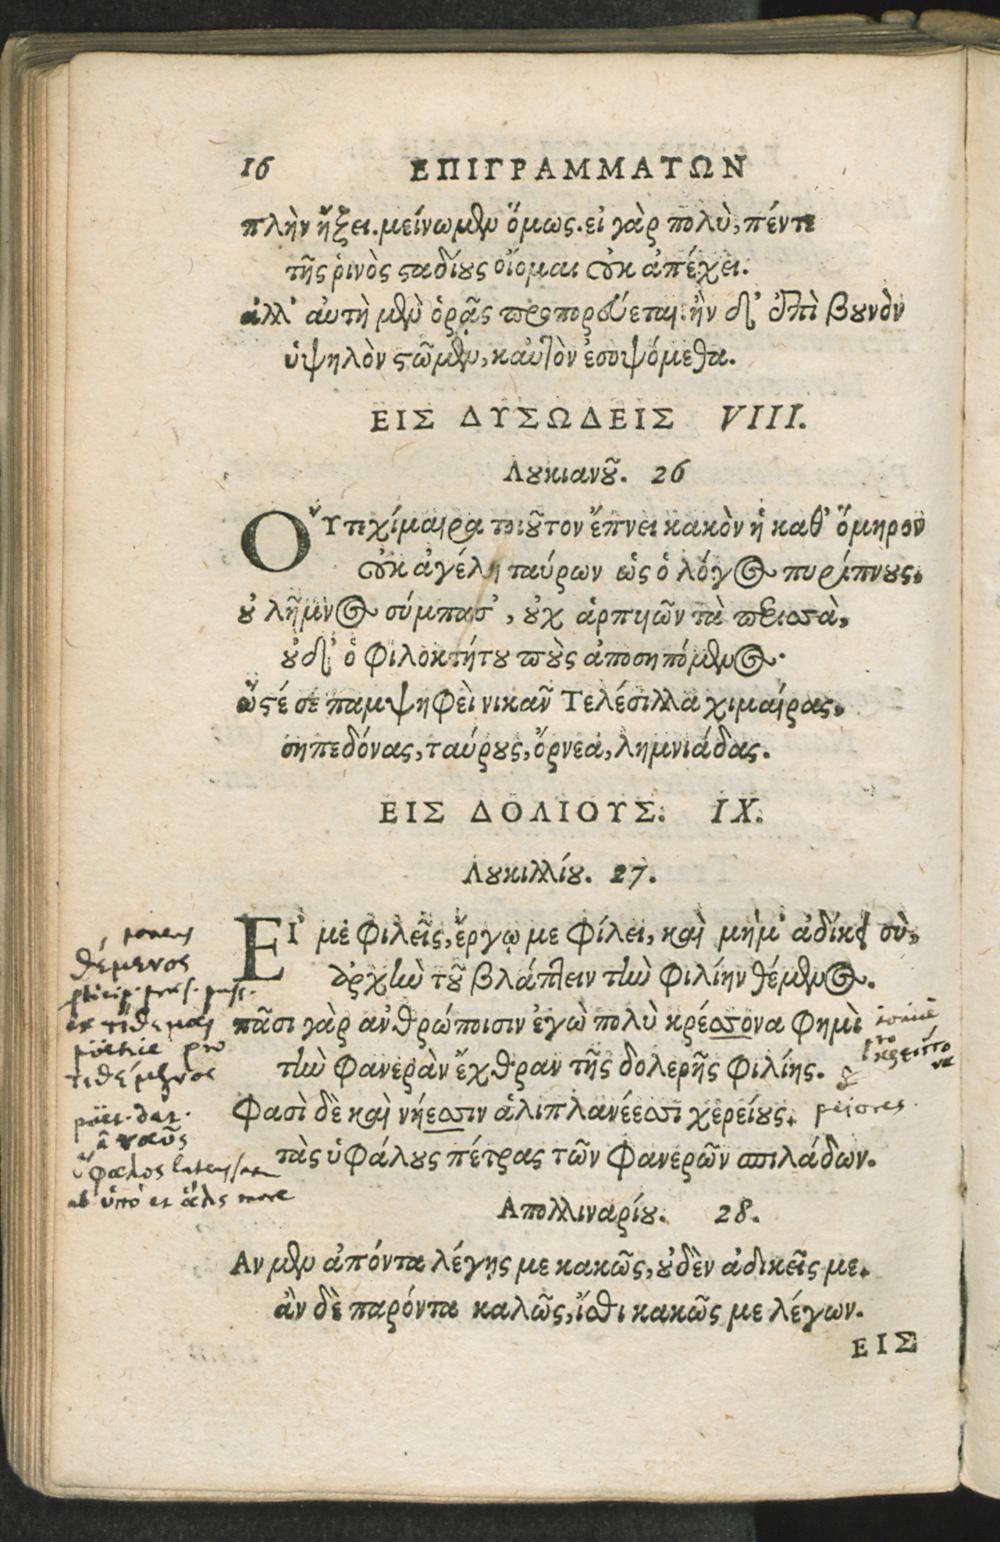 16 ΕΠΙΓΡΑΜΜΑΤΩΝ
πλὴν ἥξει. μείνωμεν ὅμως. εἰ γὰρ πολὺ, πέντε
τῆς ῥινὸς σταδίους οἴομαι οὐκ ἀπέχει.
ἀλλ' αὐτὴ μὲν ὁρᾷς προπορεύεται. ἢν δ' ἐπὶ βουνὸν
ὑψηλὸν στῶμεν, καὐτὸν ἐσοψόμεθα.
ΕΙΣ ΔΥΣΩΔΕΙΣ VIII.
Λουκιανοῦ. 26
Οὔτι χίμαιρα τοιοῦτον ἔπνει κακὸν ἡ καθ' ὅμηρον
οὐκ ἀγέλη ταύρων ὡς ὁ λόγος πυρίπνους,
οὐ λῆμνος σύμπασ', οὐχ ἁρπυιῶν τὰ περισσὰ,
οὐδ' ὁ Φιλοκτήτου ποὺς ἀποσηπόμενος.
ὥστέ σε παμψηφεὶ νικᾶν Τελέσιλλα χιμαίρας,
σηπεδόνας, ταύρους, ὄρνεα, λημνιάδας.
ΕΙΣ ΔΟΛΙΟΥΣ. IX.
Λουκιλλίου. 27.
Εἴ με φιλεῖς, ἔργῳ με φίλει, καὶ μή μ' ἀδίκει σὺ,
ἀρχὴν τοῦ βλάπτειν τὴν φιλίην θέμενος.
πᾶσι γὰρ ἀνθρώποισιν ἐγὼ πολὺ κρέσσονα φημὶ
τὴν φανερὰν ἔχθραν τῆς δολερῆς φιλίης.
φασὶ δὲ καὶ νήεσσιν ἁλιπλανέεσσι χερείους.
τὰς ὑφάλους πέτρας τῶν φανερῶν σπιλάδων.
Απολλιναρίου. 28.
Αν μὲν ἀπόντα λέγῃς με κακῶς, οὐδὲν ἀδικεῖς με.
ἂν δὲ παρόντα καλῶς, ἴσθι κακῶς με λέγων.
ΕΙΣ
ponens
θέμενος
ex τίθεμαι
poëticè pro
τιθέμενος
poët. dat.
à ναῦς
ὕφαλος latens
ab ὑπό et ἅλς mare
ionicè
pro
κρείττονα
peiores.